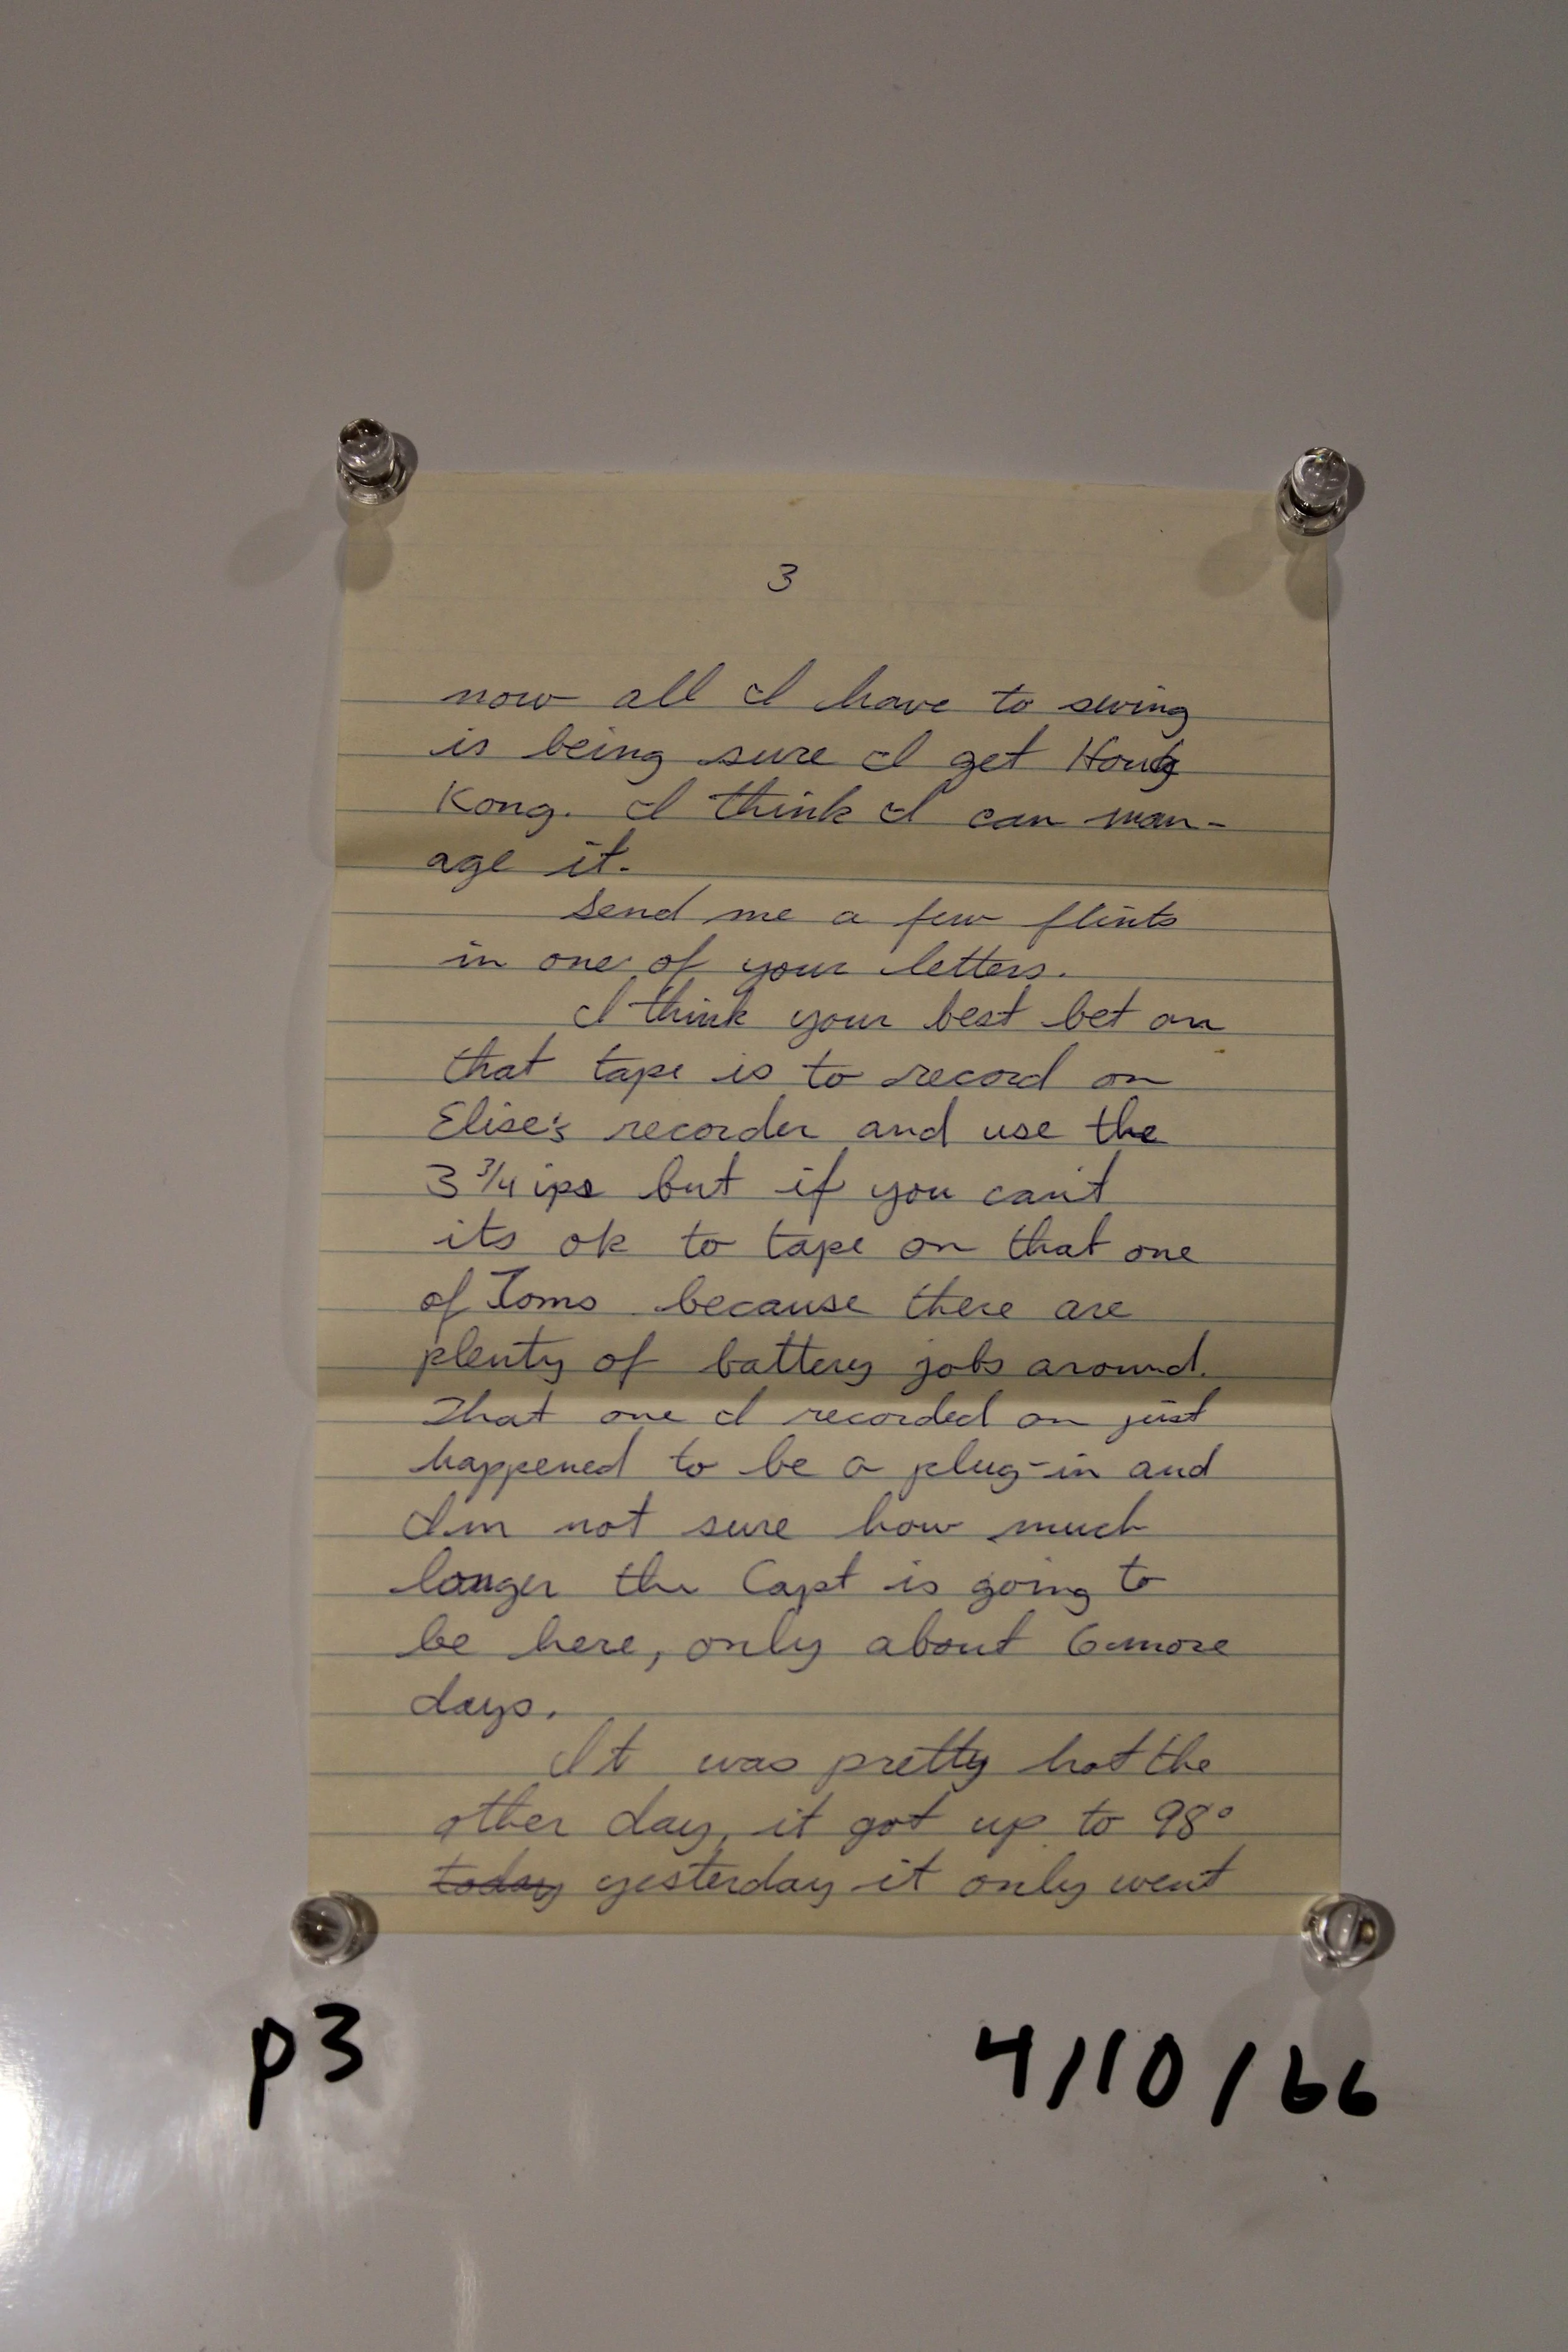 3
now all I have to swing
is being sure I get Hong
Kong. I think I can man-
age it.
Send me a few flints
in one of your letters.
I think your best bet on
that tape is to record on
Elise's recorder and use the
3 3/4 ips but if you can't
its ok to tape on that one
of Toms because there are
plenty of battery jobs around.
That one I recorded on just
happened to be a plug-in and
I'm not sure how much
longer the Capt is going to
be here, only about 6 more
days.
It was pretty hot the
other day, it got up to 98°
today yesterday it only went
p3
4/10/66